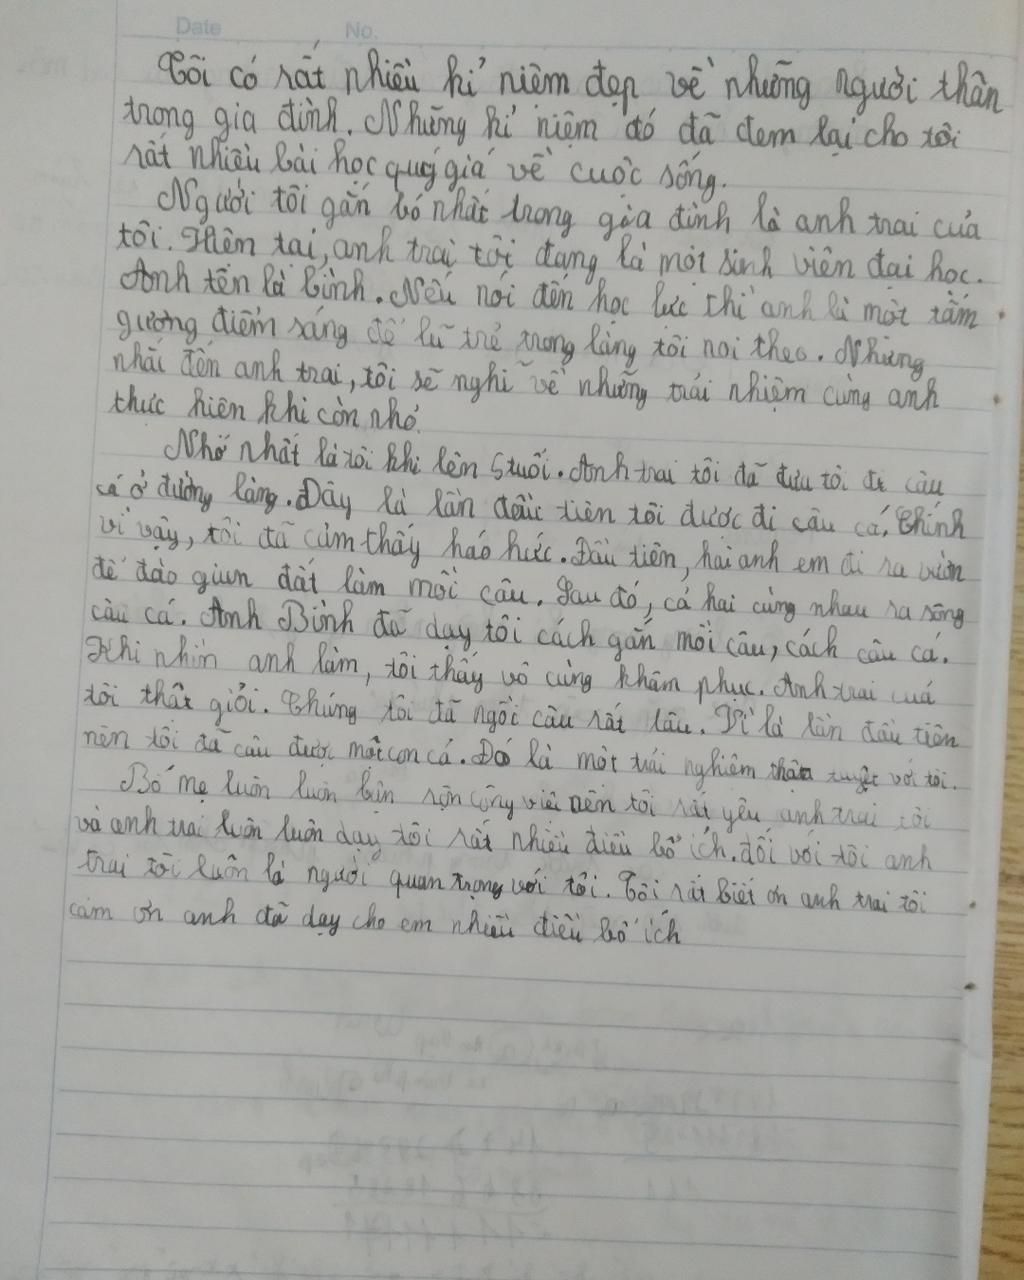 Date No.
Tôi có rất nhiều kỉ niệm đẹp về những người thân
trong gia đình. Những kỉ niệm đó đã đem lại cho tôi
rất nhiều bài học quý giá về cuộc sống.
Người tôi gắn bó nhất trong gia đình là anh trai của
tôi. Hiên tai, anh trai tôi đang là một sinh viên đại học.
Anh tên là bình. Nếu nói đến học lực thì anh là một tấm
gương điểm sáng để lũ trẻ trong làng tôi noi theo. Nhưng
nhắc đến anh trai, tôi sẽ nghĩ về những trải nhiệm cùng anh
thực hiên khi còn nhỏ.
Nhớ nhất là tôi khi lên 5 tuổi. Anh trai tôi đã đưa tôi đi câu
cá ở đường làng. Đây là lần đầu tiên tôi được đi câu cá. Chính
vì vậy, tôi đã cảm thấy háo hức. Đầu tiên, hai anh em đi ra vườn
để đào giun đất làm mồi câu. Sau đó, cả hai cùng nhau ra sông
câu cá. Anh Bình đã dạy tôi cách gắn mồi câu, cách câu cá.
Khi nhìn anh làm, tôi thấy vô cùng khâm phục. Anh trai của
tôi thật giỏi. Chúng tôi đã ngồi câu rất lâu. Vì là lần đầu tiên
nên tôi đã câu được một con cá. Đó là một trải nghiêm thật tuyệt với tôi.
Bố mẹ luôn luôn bận rộn công việc nên tôi rất yêu anh trai tôi
và anh trai luôn luôn dạy tôi rất nhiều điều bổ ích. đối với tôi anh
trai tôi luôn là người quan trọng với tôi. Tôi rất biết ơn anh trai tôi
cảm ơn anh đã dạy cho em nhiều điều bổ ích